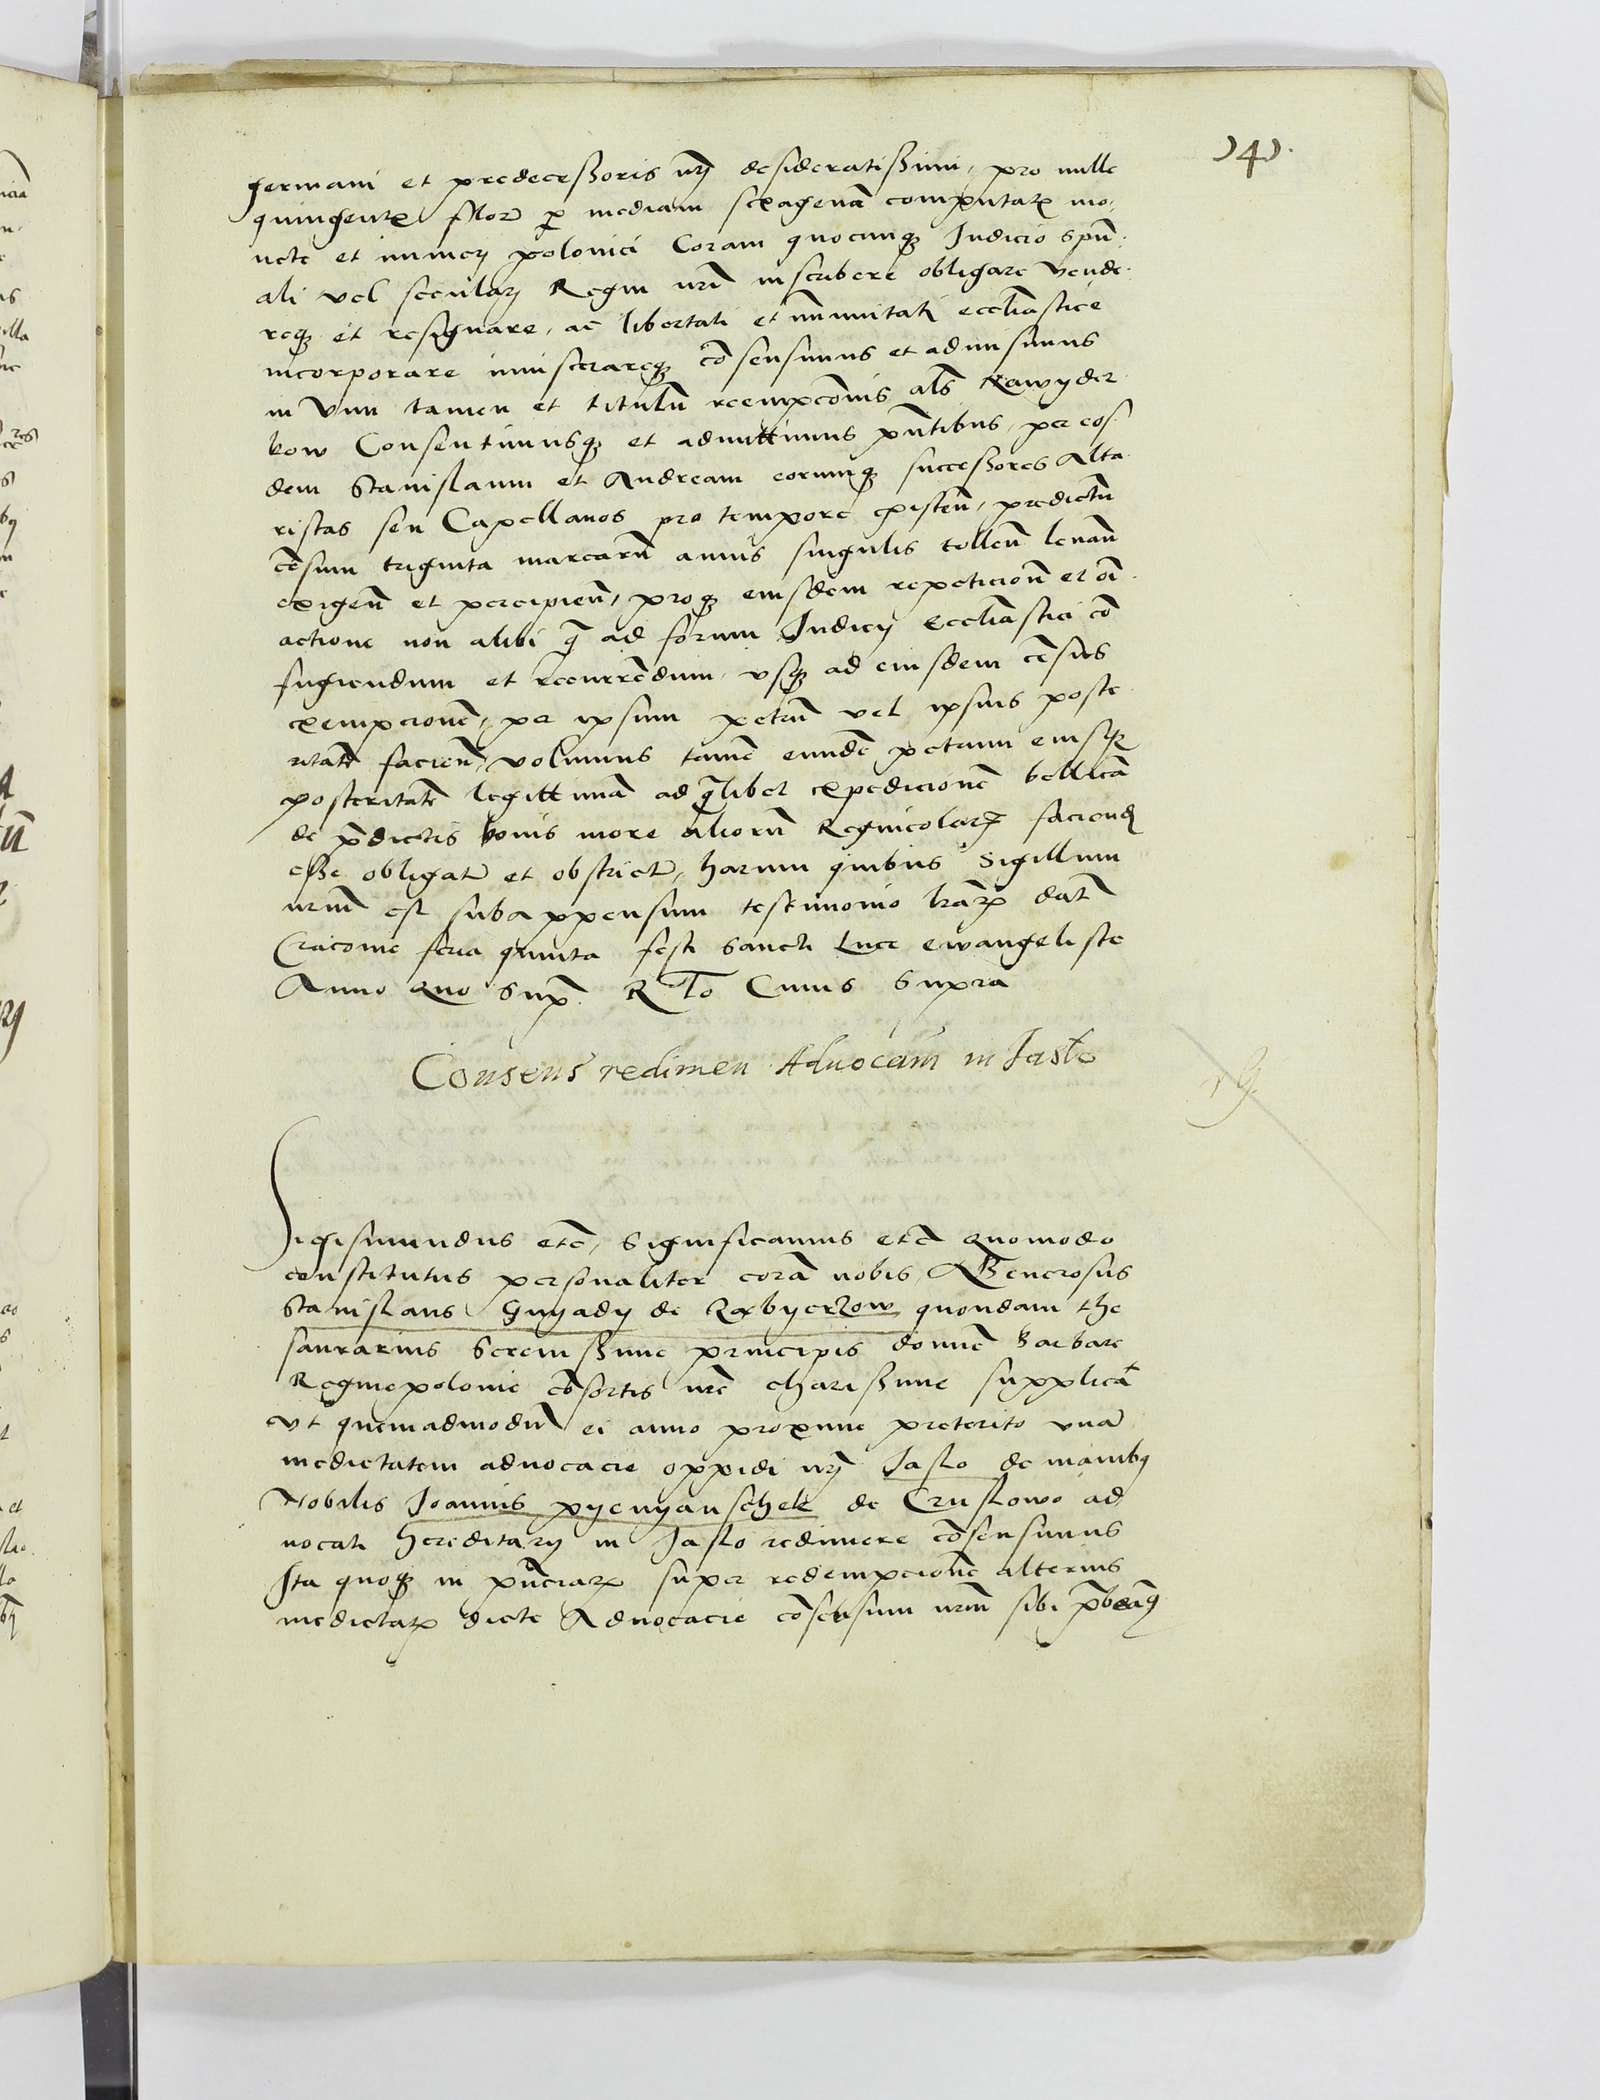 141.
germani et predecessoris nrj desideratissimi, pro mille
quingentz flor p mediam sexagena computatz mo,
nete et numerj polonici Coram quocunq Judicio spu,
ali vel secularj Regni nri inscribere obligare vende
req et resignare, ac libertati et immunitatj eccliastice
incorporare inviscerareq cosensimus et admisimus
in Vim tamen et titulu reempcois als Nawyder
kow Consentimusq et admittimus pntibus, per eos
dem Stanislaum et Andream eorumq successores Alta
ristas seu Capellanos pro tempore existen, predictu
cesum triginta marcaru annis singulis tollen leuan
exigen et percipien, proq eiusdem repeticion et oi
actione non alibi q ad forum Judicij Eccliastici co
fugiendum et recurredum, vsq ad eiusdem cesus
exempcione, per ipsum petru vel ipsius poste
ritate facien, volumus tame eunde petrum eiusq
posteritate legittima ad qlibet expedicione bellica
de pdictis bonis more alioru Regnicolarz faciend
esse obligat et obstrict, harum quibus Sigillum
nrum est subappensum testimonio lrarz dat
Cracouie feria quinta festi sancti Luce ewangeliste
Anno quo sup. R To Cuius supra
Consens redimen Aduocam in Jaslo
Sigismundus etc, Significamus etc quomodo
constitutus personaliter cora nobis, Generosus
Stanislaus Gnyady de Zabyerzow quondam the
saurarius Serenissime principis domne Barbare
Regine polonie cosortis nre charissime supplica
vt quemadmodu ei anno proxime preterito vna
medietatem aduocacie oppidi nrj Jaslo de manibg
Nobilis Joannis pyenyanschek de Cruslowo ad
uocati hereditarij in Jaslo redimere cosensimus
Ita quoq in pnciarz super redempcione alterius
medietatz dicte Aduocacie cosensum nrum sibi pbeaq